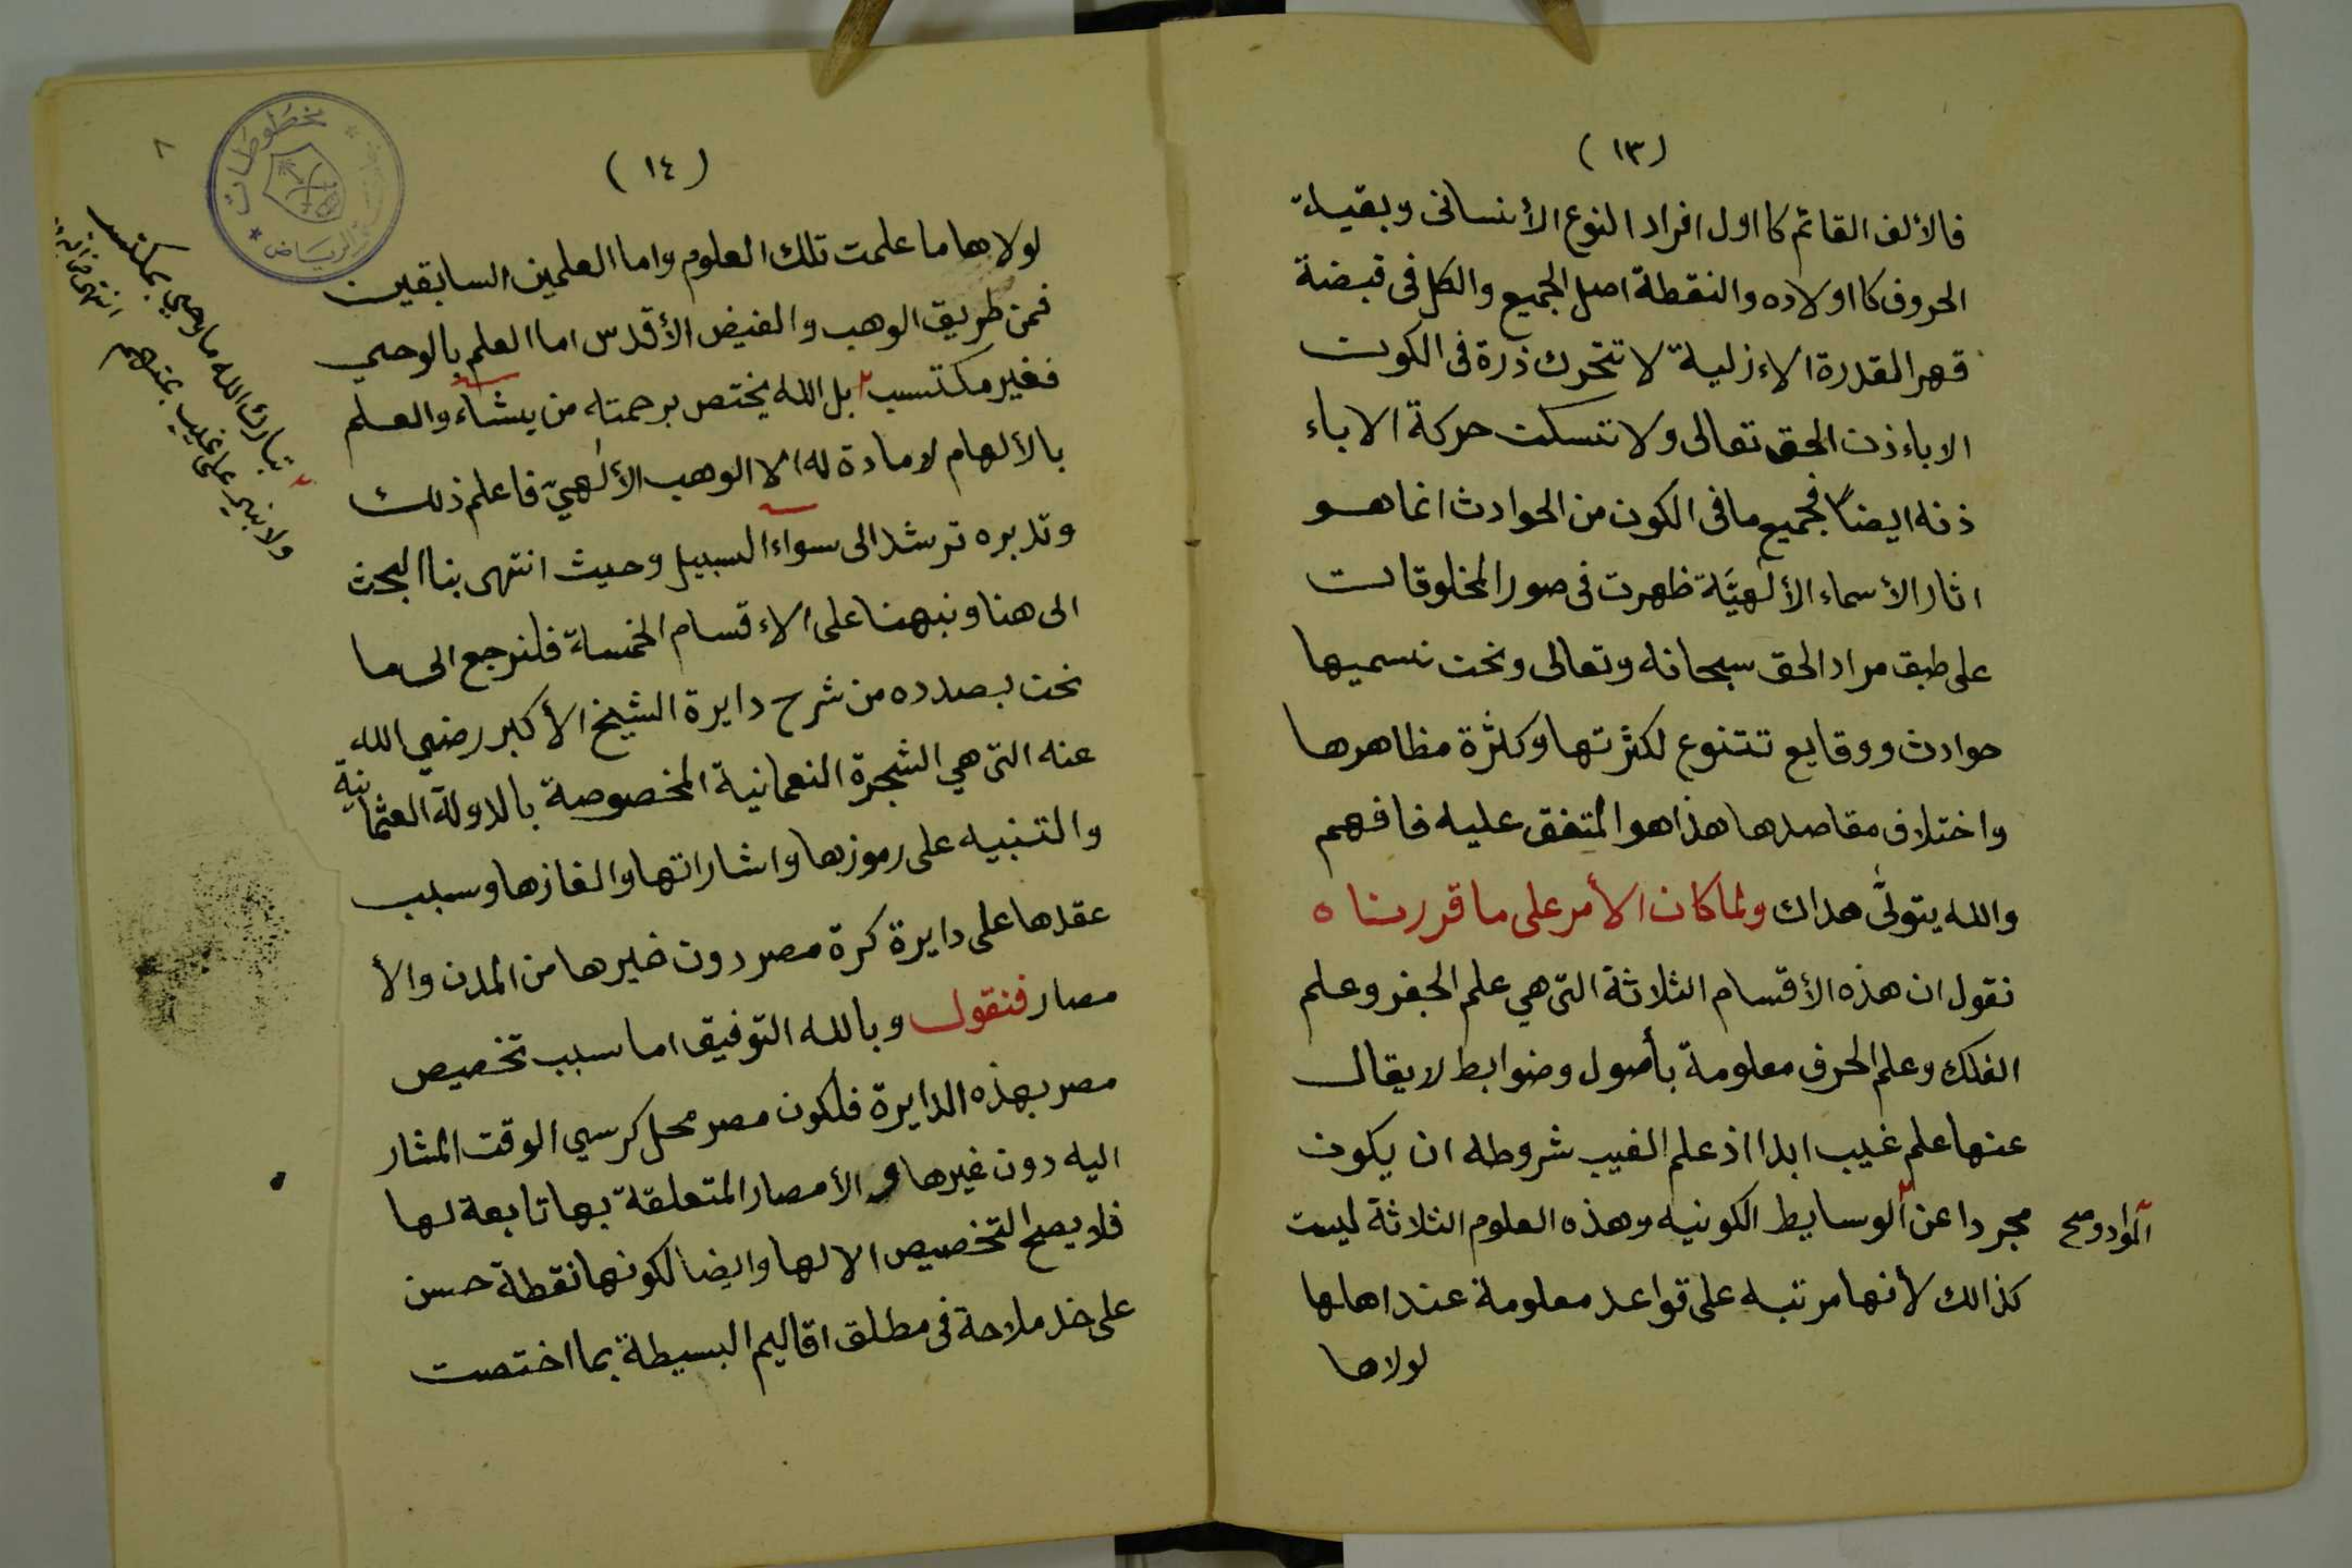 (١٣)
فالألف القائم كا اول افراد النوع الأنسانى وبقية
الحروف كا اولاده والنقطة اصل الجميع والكل فى قبضة
قهر القدرة الاءزلية لا تتحرك ذرة فى الكون
الا باءذن الحق تعالى ولا تسكن حركة الا باء
ذنه ايضاً فجميع ما فى الكون من الحوادث انما هو
اثار الأسماء الألهيَّة ظهرت فى صور المخلوقات
على طبق مراد الحق سبحانه وتعالى ونحن نسميها
حوادث ووقايع تتنوع لكثرتها وكثرة مظاهرها
واختلاف مقاصدها هذا هو المتفق عليه فافهم
والله يتولَّى هداك ولما كان الأمر على ما قررناه
نقول ان هذه الأقسام الثلاثة التى هي علم الجفر وعلم
الفلك وعلم الحرف معلومة بأصول وضوابط لا يقال
عنها علم غيب ابدا اذ علم الغيب شروطه ان يكون
مجردا عن الوسايط الكونيه وهذه العلوم الثلاثة ليست
المواد و صح
كذالك لأنها مرتبه على قواعد معلومة عند اهلها
لولاها
(١٤)
٨
مخطوطات
الرياض
لولاها ما علمت تلك العلوم واما العلمين السابقين
فمن طريق الوهب والفيض الأقدس اما العلم بالوحي
فغير مكتسب بل الله يختص برحمته من يشاء والعلم
بالألهام لا مادة له الا الوهب الألهيّ فاعلم ذلك
وتدبره ترشد الى سواء السبيل وحيث انتهى بنا البحث
الى هنا ونبهنا على الاءقسام الخمسة فلنرجع الى ما
نحن بصدده من شرح دايرة الشيخ الأكبر رضي الله
عنه التى هي الشجرة النعمانية المخصوصة بالدولة العثمانية
والتنبيه على رموزها واشاراتها والغازها وسبب
عقدها على دايرة كرة مصر دون غيرها من المدن والأ
مصار فنقول وبالله التوفيق اما سبب تخصيص
مصر بهذه الدايرة فلكون مصر محل كرسي الوقت المشار
اليه دون غيرها و الأمصار المتعلقة بها تابعة لها
فلا يصح التخصيص الا لها وايضا لكونها نقطة حسن
على خد ملاحة فى مطلق اقاليم البسيطة بما اختصت
تبارك الله ما وحي بمكتسب
ولا نبي على غيب بمتهم
انتهى